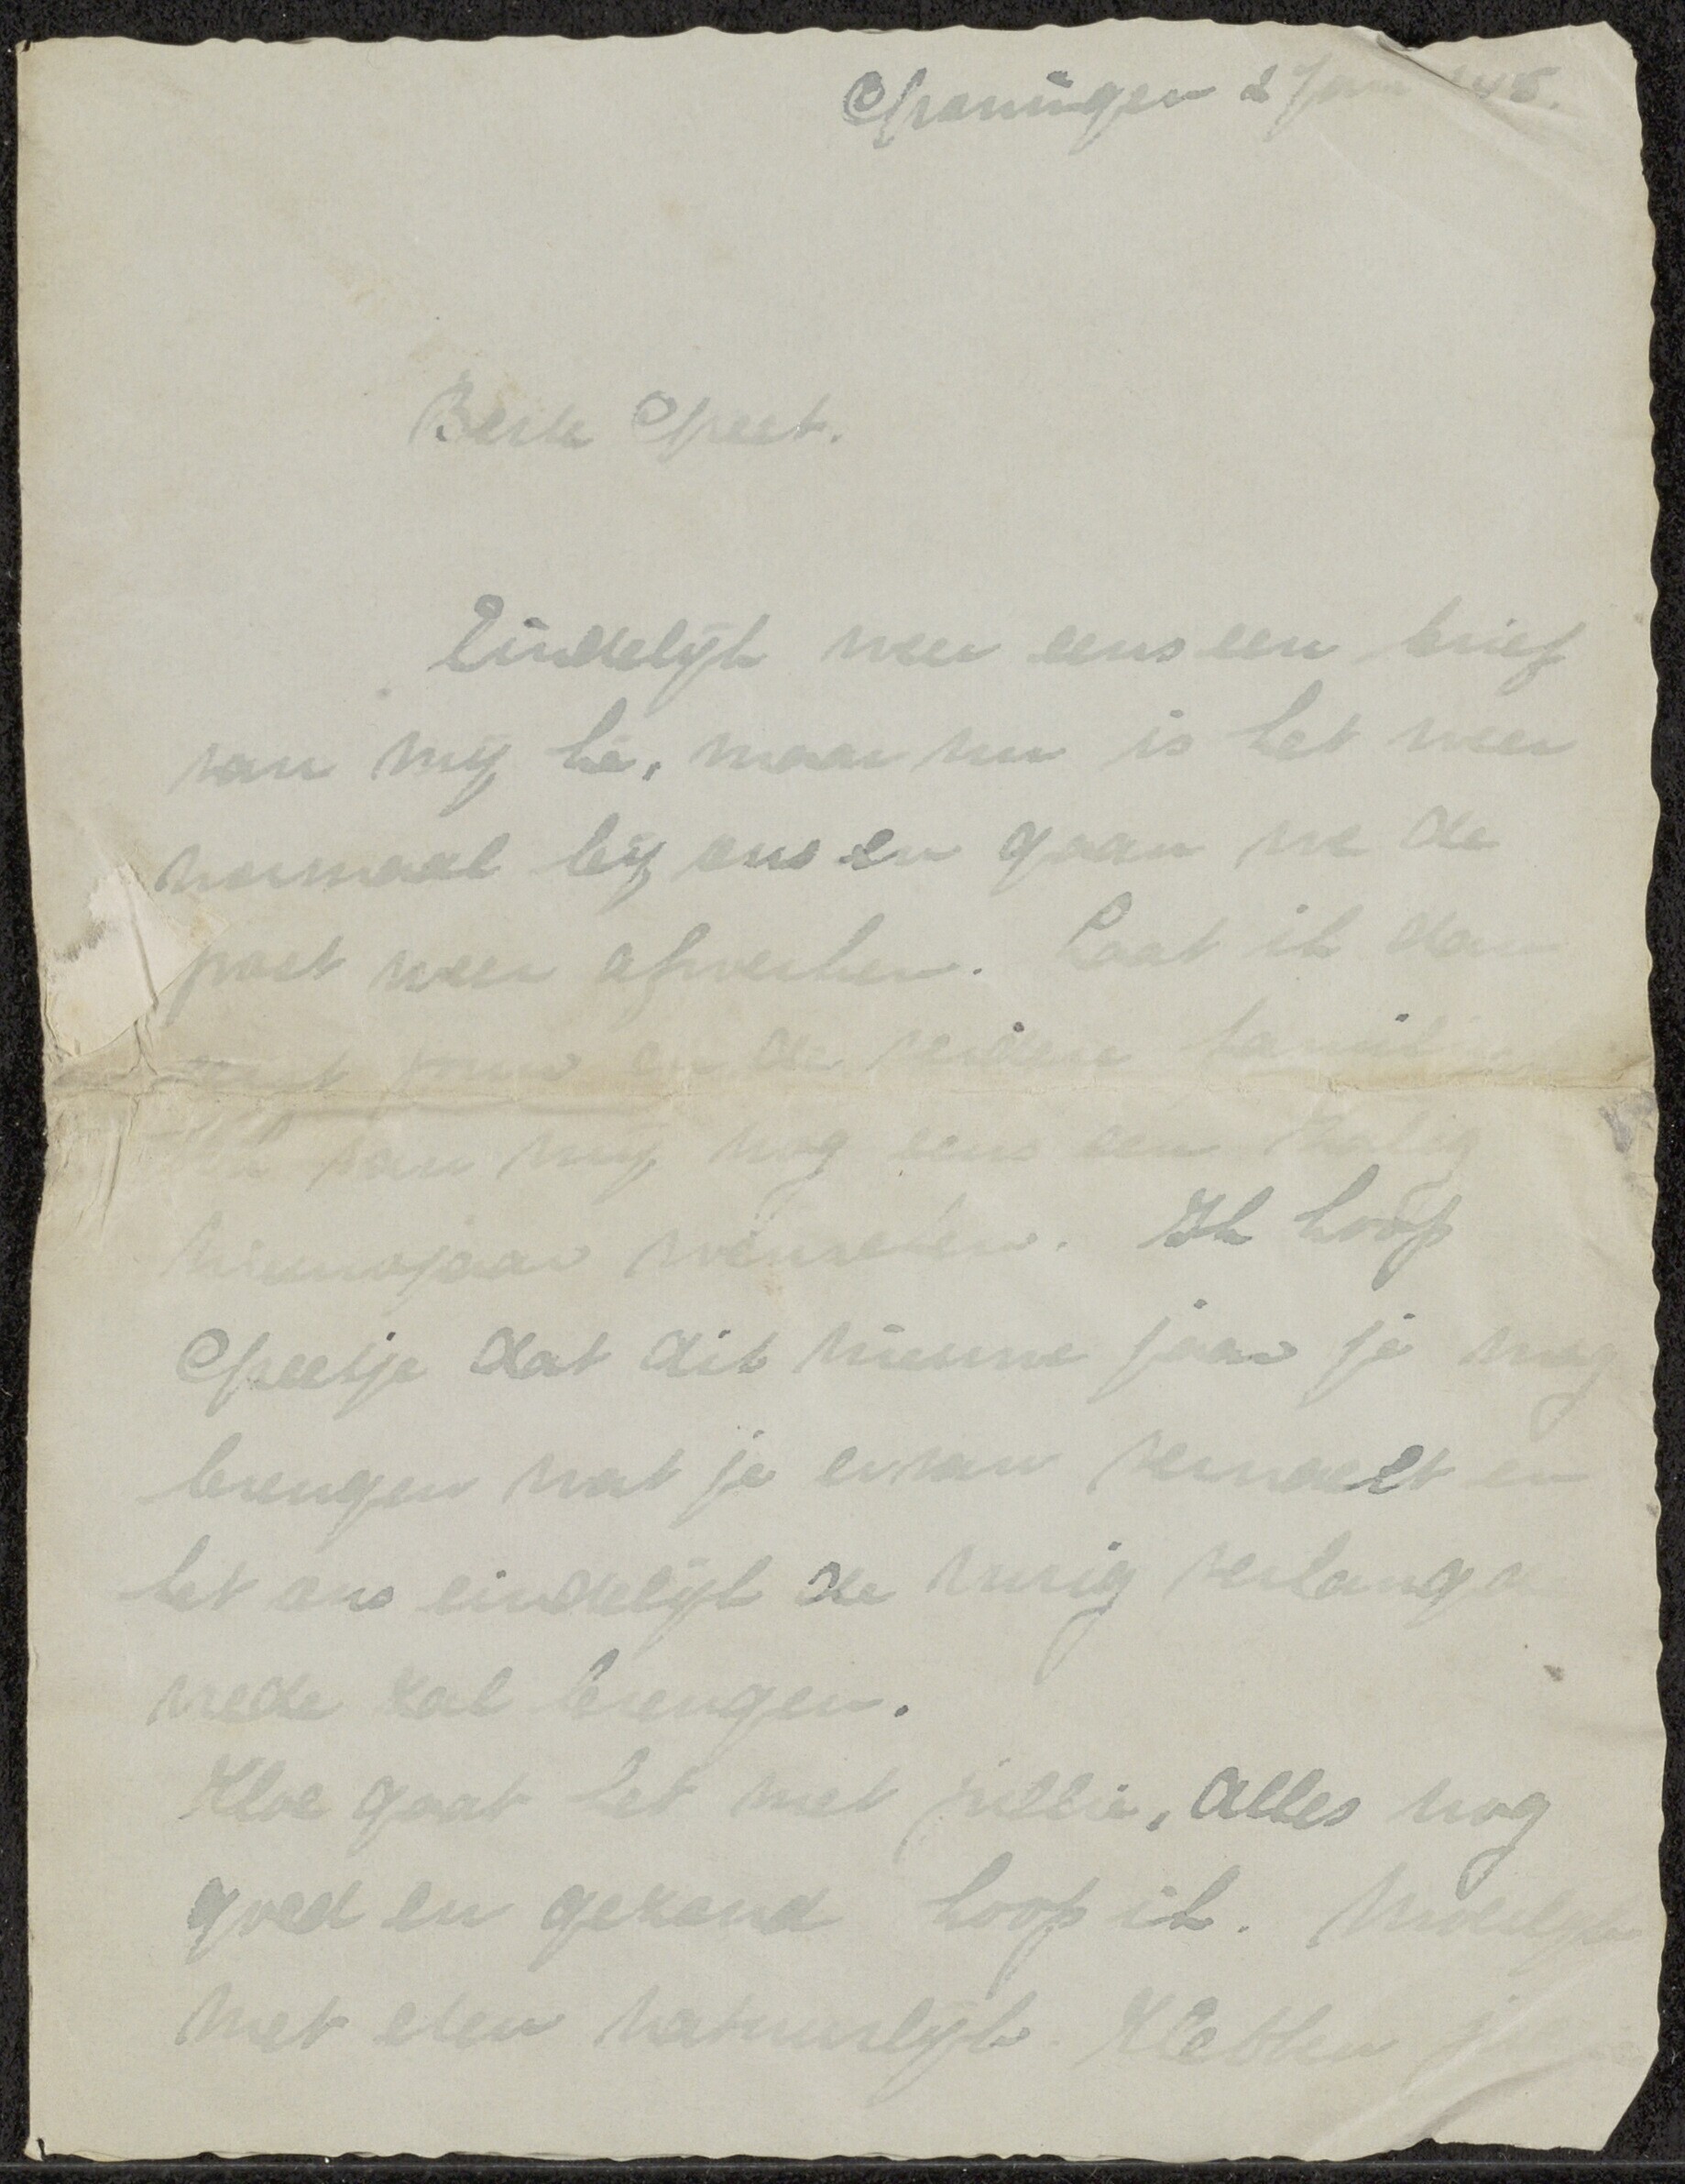 Groningen 2 Jan '45.
Beste Greet.
Eindelijk weer eens een brief
van mij hè, maar nu is het weer
normaal bij ons en gaan we de
post weer afwerken. Laat ik dan
eerst jouw en de verdere familie
van mij nog eens een zalig
nieuwjaar wenschen. Ik hoop
Greetje dat dit nieuwe jaar je mag
brengen wat je ervan verwacht en
het ons eindelijk de vurig verlangde
vrede zal brengen.
Hoe gaat het met jullie, alles nog
goed en gezond hoop ik. Moeilijk
met eten natuurlijk. Hebben jullie